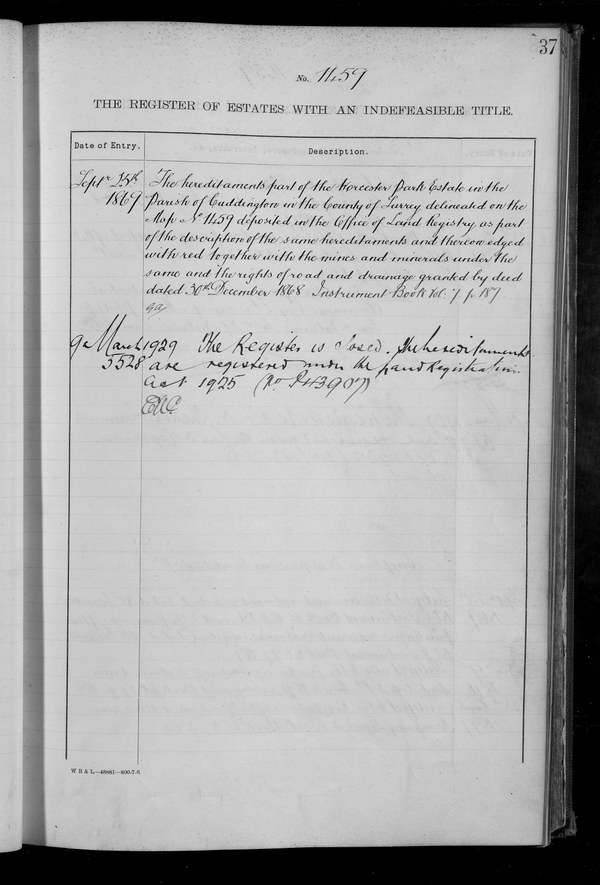 37
No. 1459
THE REGISTER OF ESTATES WITH AN INDEFEASIBLE TITLE.
Date of Entry.
Description.
Septr 25th
1869
The hereditaments part of the Worcester Park Estate in the
Parish of Cuddington in the County of Surrey delineated on the
Map No 1459 deposited in the Office of Land Registry as part
of the description of the same hereditaments and thereon edged
with red together with the mines and minerals under the
same and the rights of road and drainage granted by deed
dated 30th December 1868 Instrument Book Vol. 7 p 187
9 March 1929 The Register is closed. The hereditaments
5528 are registered under the Land Registration
Act 1925 (No P43907)
W B & L—48881—800-7-6